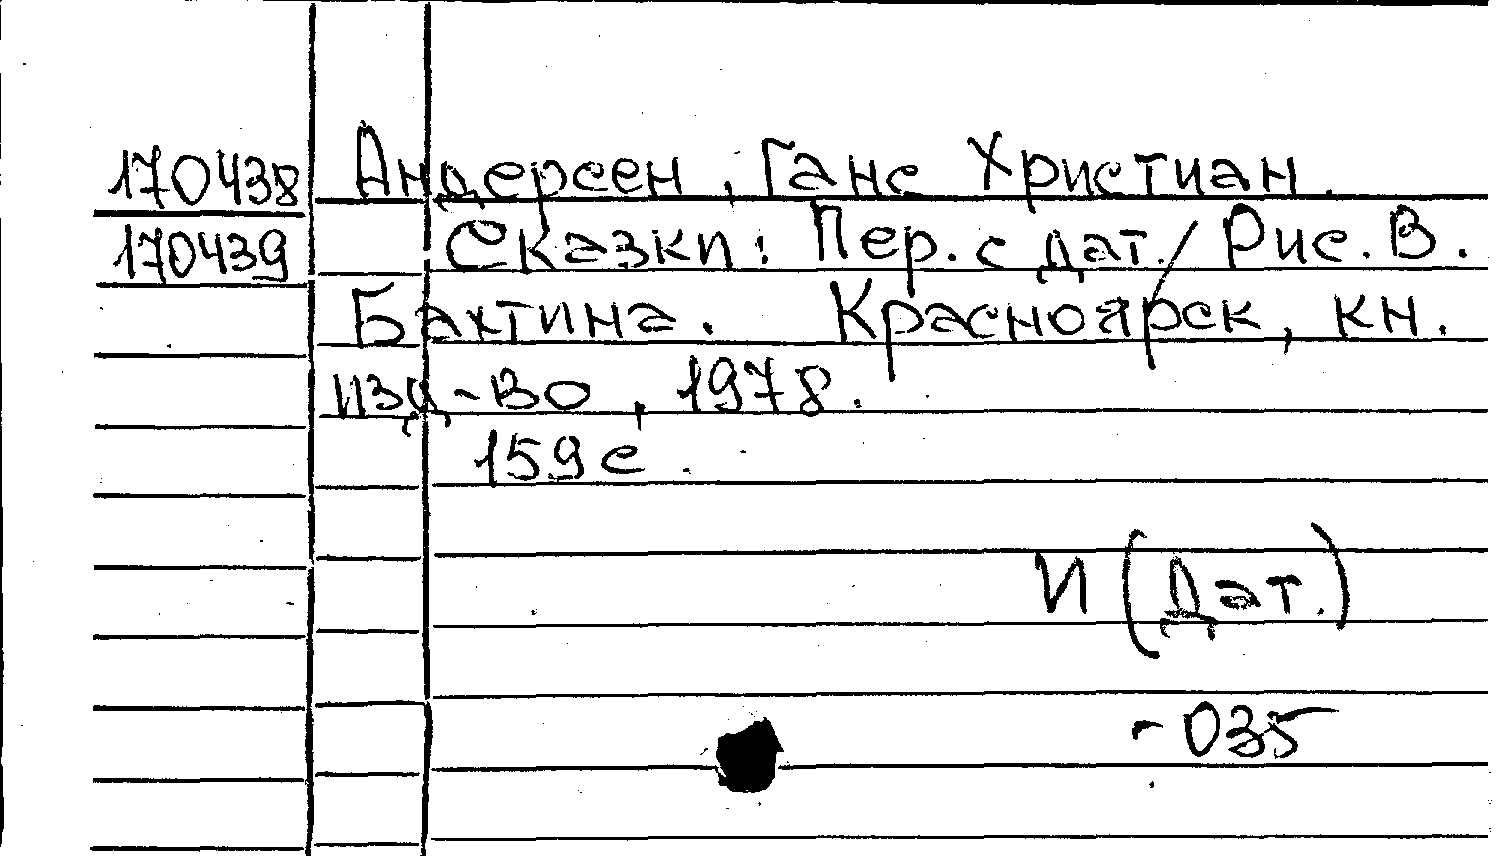 170438 Андерсен, Ганс Христиан.
170439 Сказки: Пер. с дат./ Рис. В.
Бахтина. Красноярск, кн.
изд-во, 1978.
159 с.
И (Дат.)
- 035